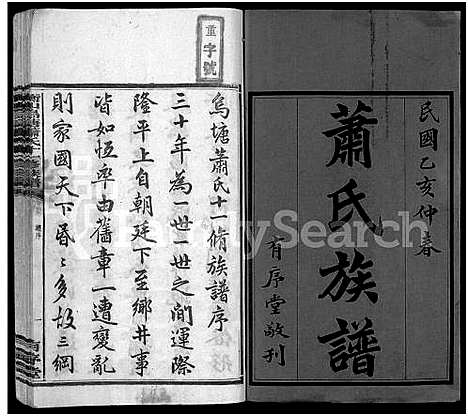 民國乙亥仲春
蕭氏族譜
有序堂敬刊
童字號
烏塘蕭氏十一脩族譜序
三十年為一世一世之間運際
隆平上自朝廷下至鄉井事
皆如恆率由舊章一遭變亂
則家國天下昬〻多故三綱
FamilySearch